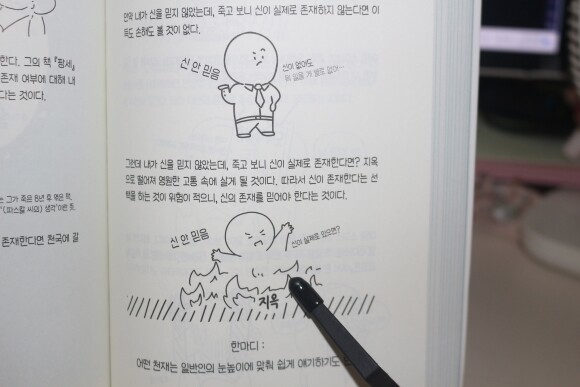 한다. 그의 책 『팡세』
존재 여부에 대해 내
다는 것이다.
그가 죽은 8년 후 엮은 책.
존재한다면 천국에 갈
만약 내가 신을 믿지 않았는데, 죽고 보니 신이 실제로 존재하지 않는다면 이
득도 손해도 볼 것이 없다.
신 안 믿음
신이 없어도
뭐 잃을 게 별로 없어…
그런데 내가 신을 믿지 않았는데, 죽고 보니 신이 실제로 존재한다면? 지옥
으로 떨어져 영원한 고통 속에 살게 될 것이다. 따라서 신이 존재한다는 선
택을 하는 것이 위험이 적으니, 신의 존재를 믿어야 한다는 것이다.
신 안 믿음
신이 실제로 있으면?
지옥
한마디 :
어떤 천재는 일반인의 눈높이에 맞춰 쉽게 얘기하기도